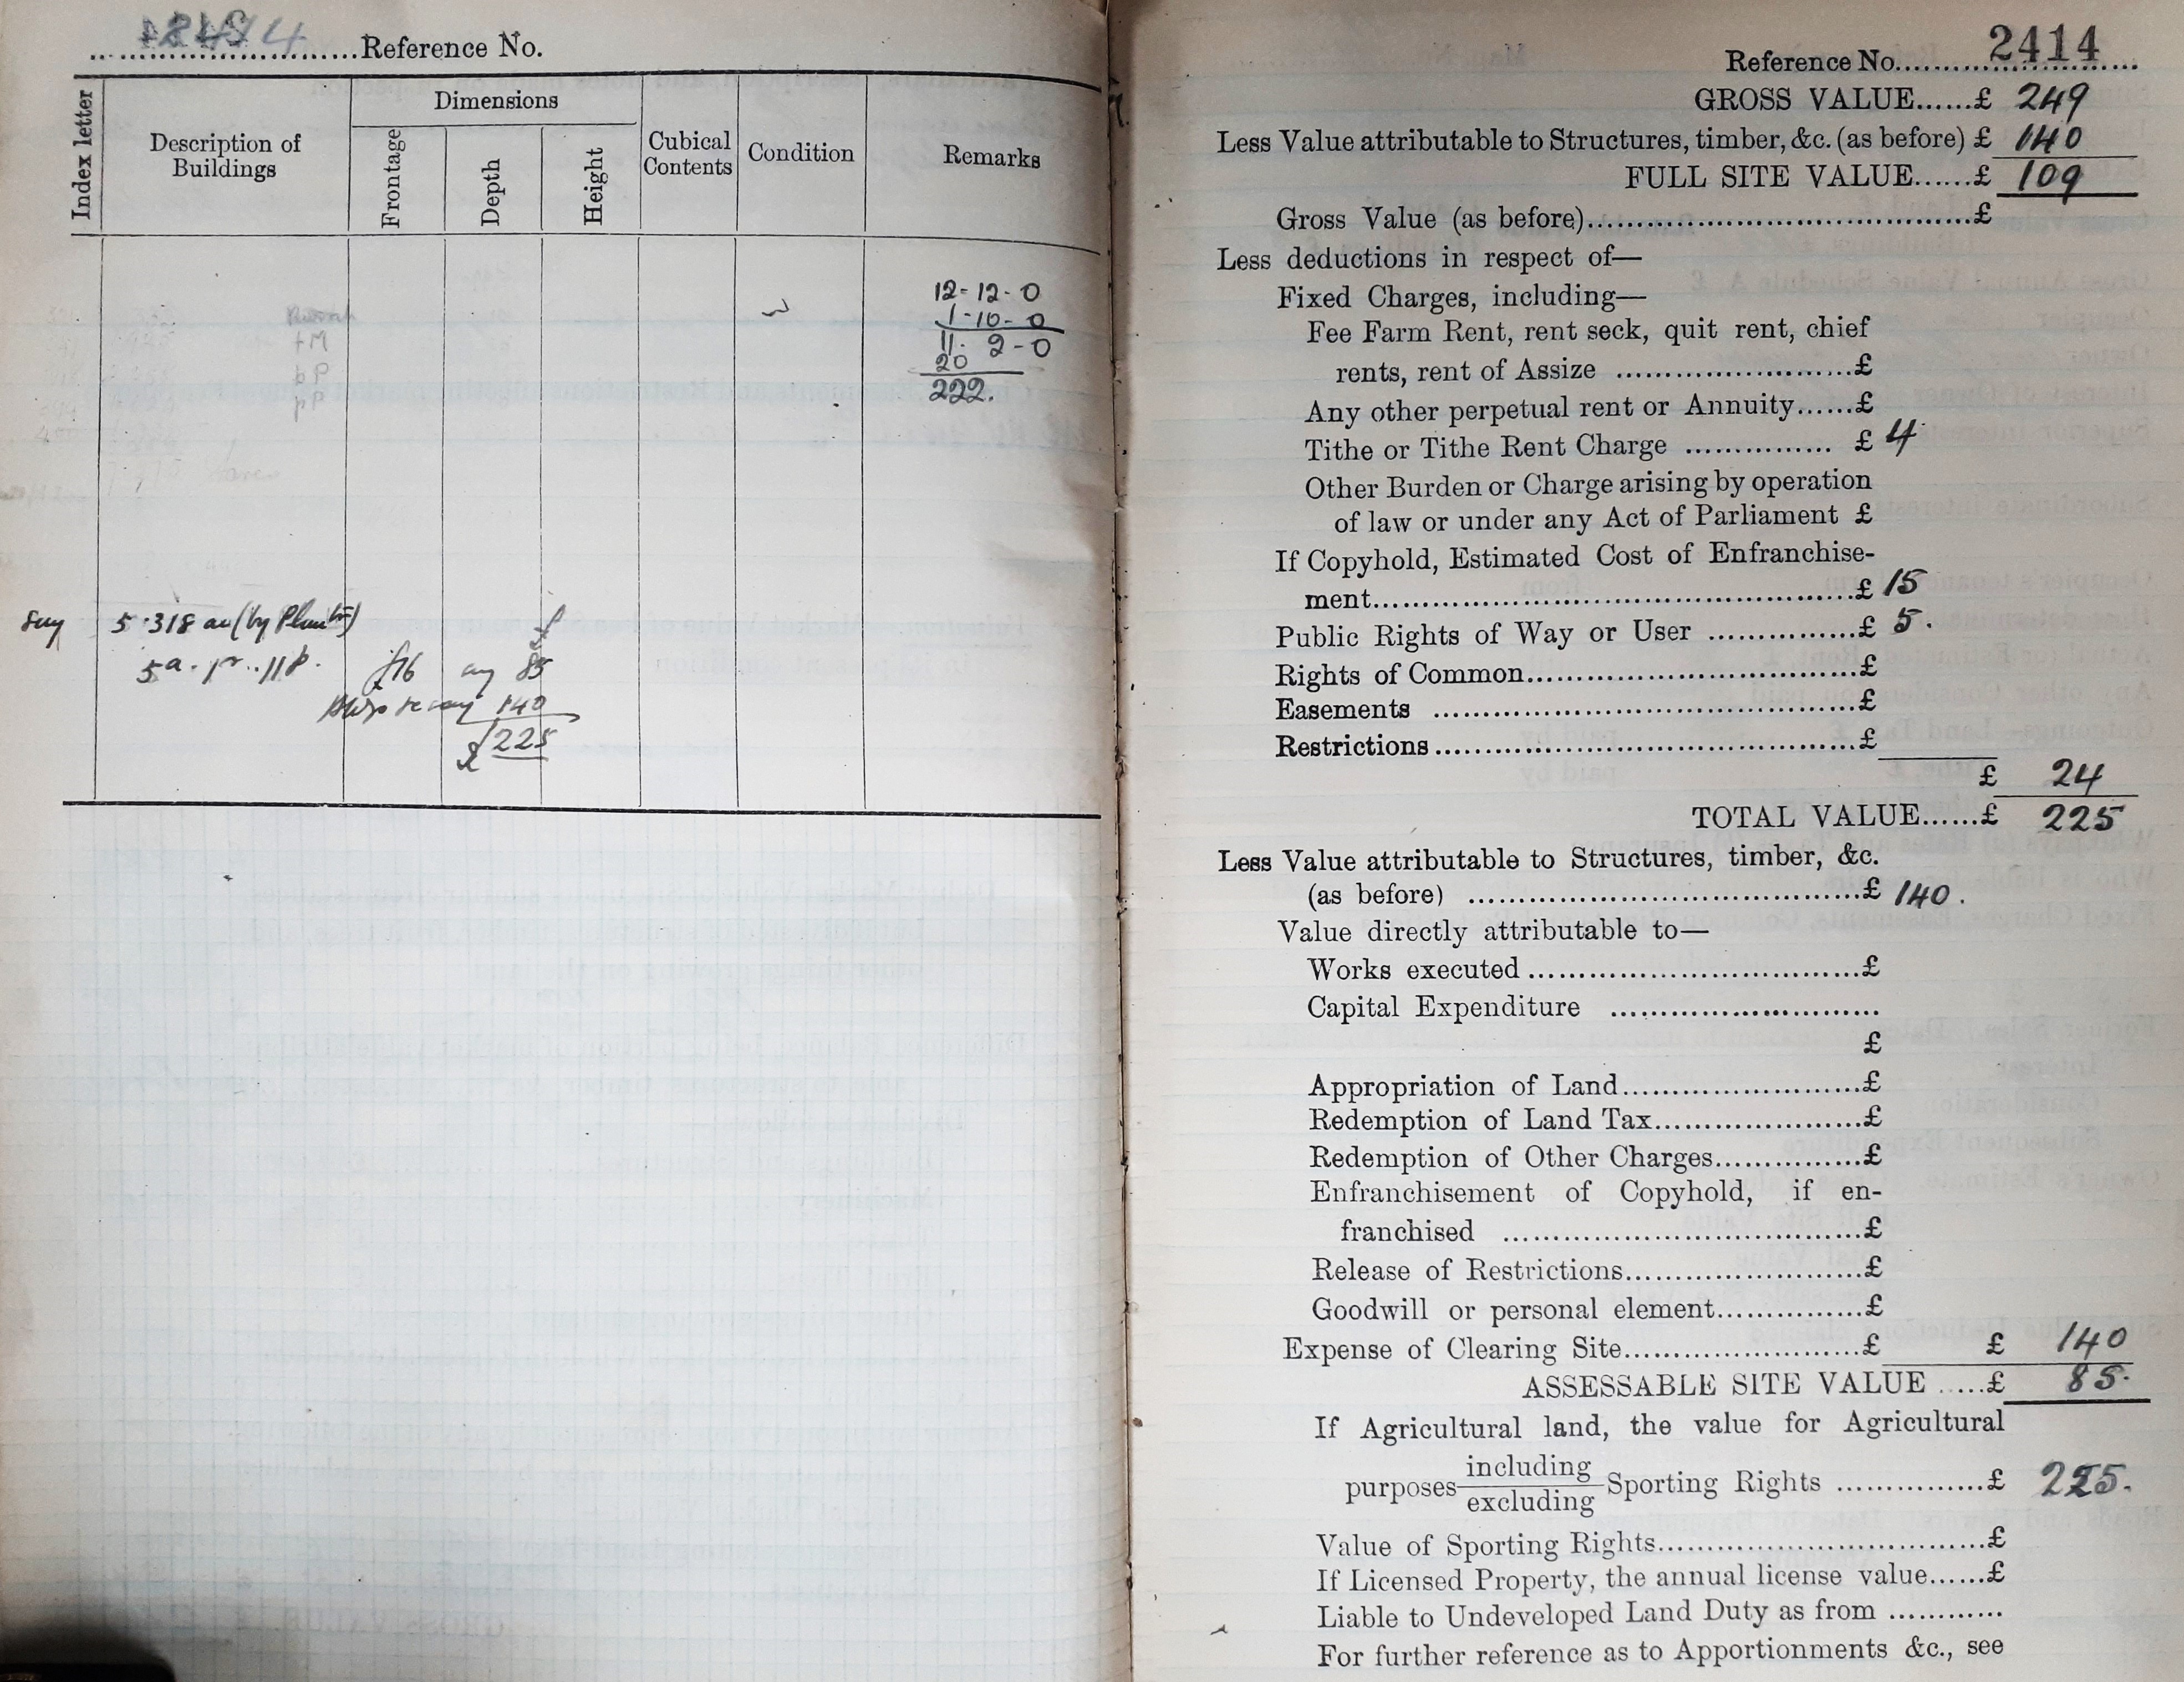 Reference No.
Index letter
Description of Buildings
Dimensions
Frontage
Depth
Height
Cubical Contents
Condition
Remarks
12-12-0
1-10-0
11. 2-0
20
222.
5.318 ac (by Planim)
5a. 1r. 11p.
£16 85
140
£225
Reference No. 2414
GROSS VALUE......£ 249
Less Value attributable to Structures, timber, &c. (as before) £ 140
FULL SITE VALUE......£ 109
Gross Value (as before)..........£
Less deductions in respect of—
Fixed Charges, including—
Fee Farm Rent, rent seck, quit rent, chief
rents, rent of Assize ..........£
Any other perpetual rent or Annuity......£
Tithe or Tithe Rent Charge ............... £ 4
Other Burden or Charge arising by operation
of law or under any Act of Parliament £
If Copyhold, Estimated Cost of Enfranchise-
ment..........£ 15
Public Rights of Way or User ...............£ 5.
Rights of Common..........£
Easements ..........£
Restrictions..........£
£ 24
TOTAL VALUE......£ 225
Less Value attributable to Structures, timber, &c.
(as before) ..........£ 140.
Value directly attributable to—
Works executed..........£
Capital Expenditure ..........
£
Appropriation of Land..........£
Redemption of Land Tax..........£
Redemption of Other Charges...............£
Enfranchisement of Copyhold, if en-
franchised ..........£
Release of Restrictions..........£
Goodwill or personal element...............£
Expense of Clearing Site..........£ £ 140
ASSESSABLE SITE VALUE .....£ 85.
If Agricultural land, the value for Agricultural
purposes including
excluding Sporting Rights ...............£ 225.
Value of Sporting Rights..........£
If Licensed Property, the annual license value......£
Liable to Undeveloped Land Duty as from ............
For further reference as to Apportionments &c., see